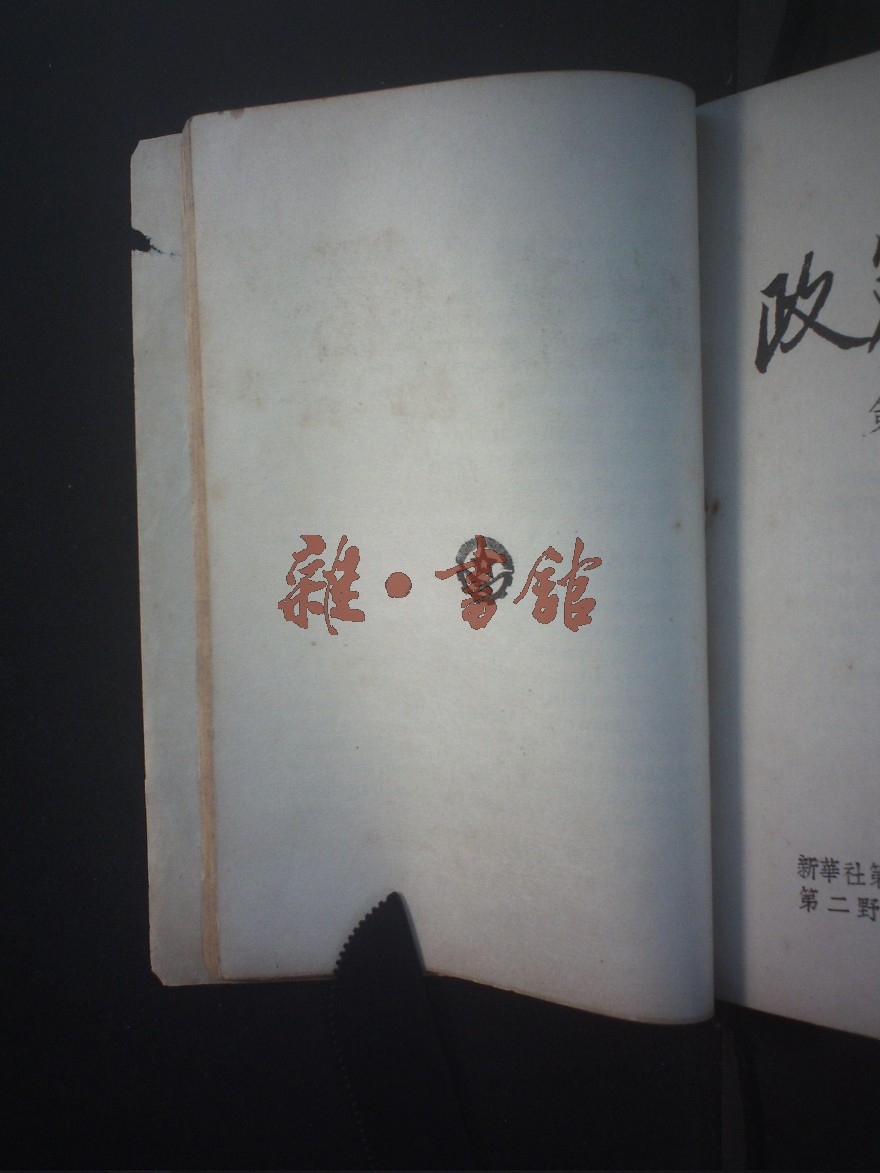 雜·書館
政
新華社第
第二野